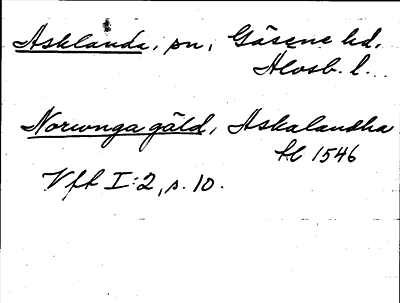 Asklanda, sn, Gäsene hd.
Älvsb. l...
Norwnga gäld, Askalandha
hl 1546
Vfl I:2, s. 10.